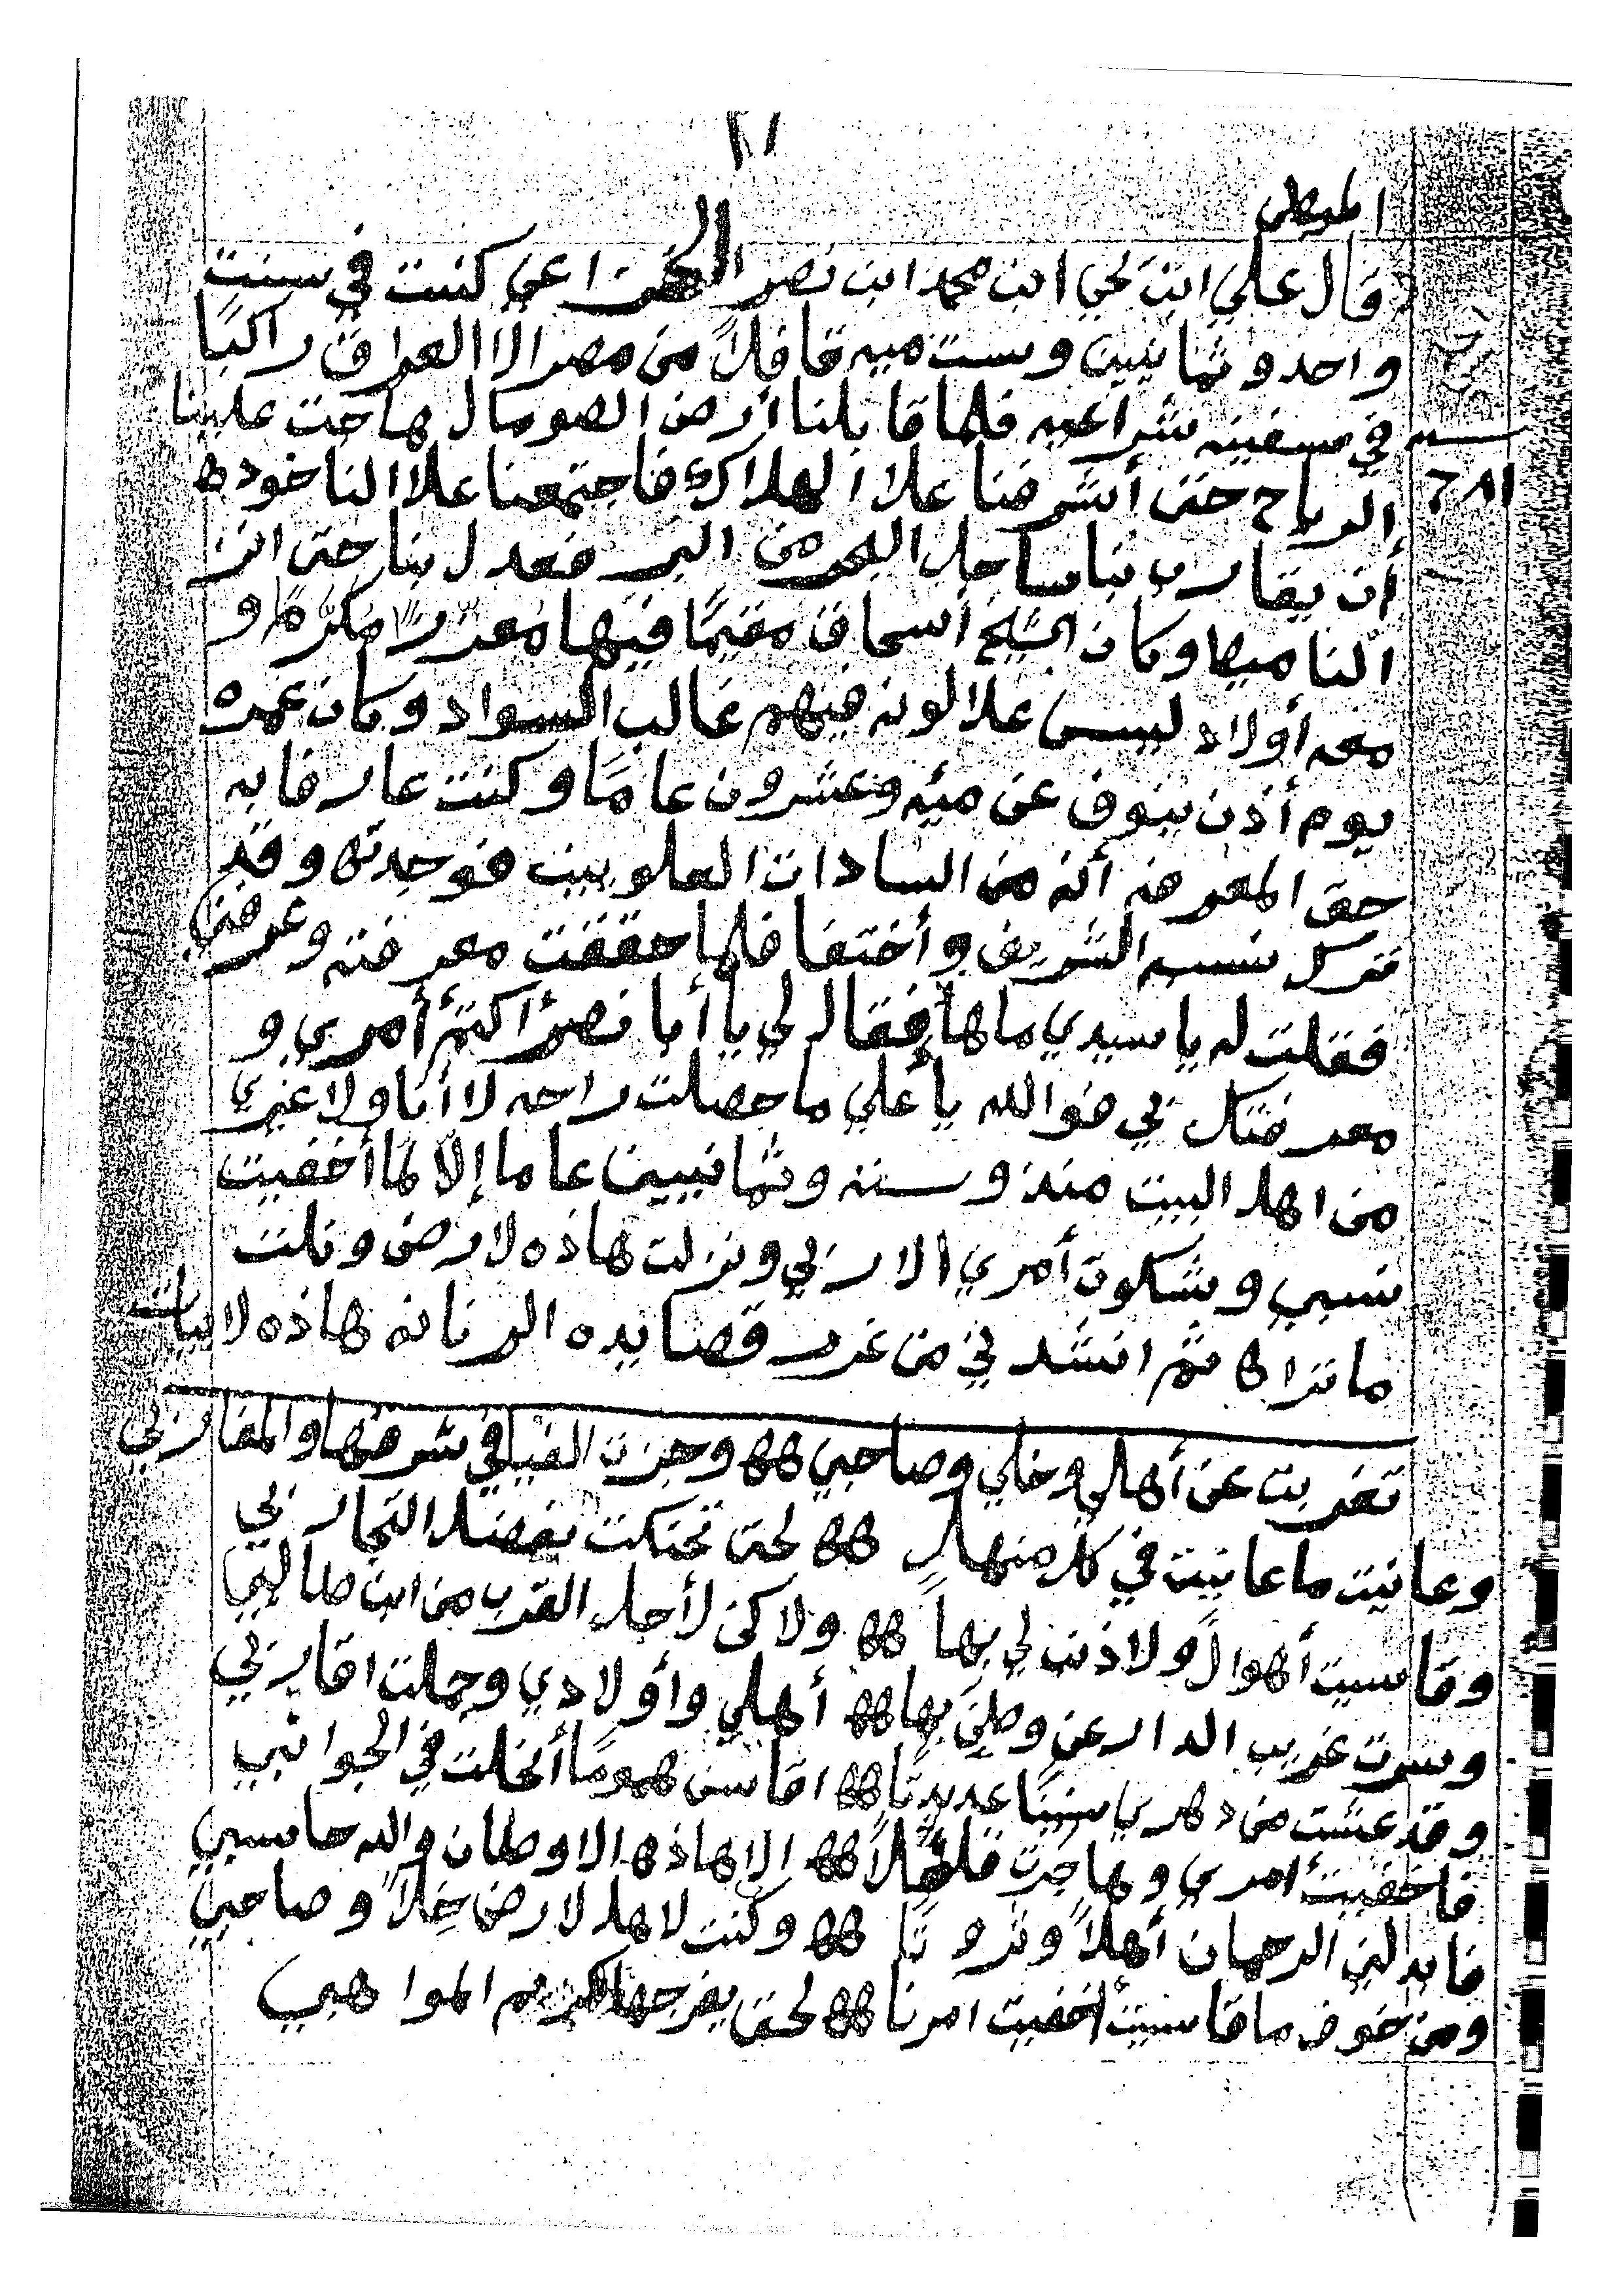 ١١
قال علي ابن لحي ابن محمد ابن نصر الخزاعي كنت في سنت
واحد وثمانيين وست ميه قافلاً من مصر الا العراق راكبًا
في سفينه شراعيه فلما قابلنا أرض الصومال هاجت علينا
سنه
الرياح حتى أشرفنا علا الهلاك فاجتمعنا علا الناخوده
٦٨١
أن يقارب بنا ساحل البحر من البر فعدل بنا حتى انز
النا ميط وكان الشيخ أسحاق مقيمًا فيها معززًا مكرمًا و
معه أولاد ليس علا لونه فيهم غالب السواد وكان عمره
يوم أذن ينوف عن ميه وعشرون عامًا وكنت عارفا به
حق المعرفه أنه من السادات العلويين فوجدته وقد
ترك نسبه الشريف وأختفا فلما حققت معرفته وعرفني
فقلت له يا سيدي ماها فقال لي يا أبا نصر اكتم أمري و
معرفتك بي فوالله يا علي ما حصلت راحه لا أنا ولا غيري
من اهل البيت منذ وسنه وثمانيين عاما إلاّ لما أخفيت
نسبي وشكوت أمري الا ربي ونزلت هاذه لارض ونلت
ما تراه ثم انشدني من غرر قصايده الرنانه هاذه لابيات
تغربت عن أهلي وخلي وصاحبي هه وجزت الفيافي شرقها والمغاربي
وعانيت ما عانيت في كل منهل هه لحتى تحنكت بفضل التجاربي
وقاسيت أهوالً ولا ذنب لي بها هه ولاكن لأجل القرب من ابن طالبي
وسرت غريب الدار عن وطني بها هه أهلي وأولادي وجملت اقاربي
وقد عشت من دهري سنينًا عديدتًا هه اقاسي همومًا أنخلت في الجوانبي
فاخفيت امري وهاجرت هه الا هاذه الاوطان والله حاسبي
فابدلني الرحمان أهلاً وثروتًا هه وكنت لاهل لارض خلاً وصاحبي
ومن خوف ما قاسيت أخفيت امرنا هه لحتى يفرجها كريم المواهبي